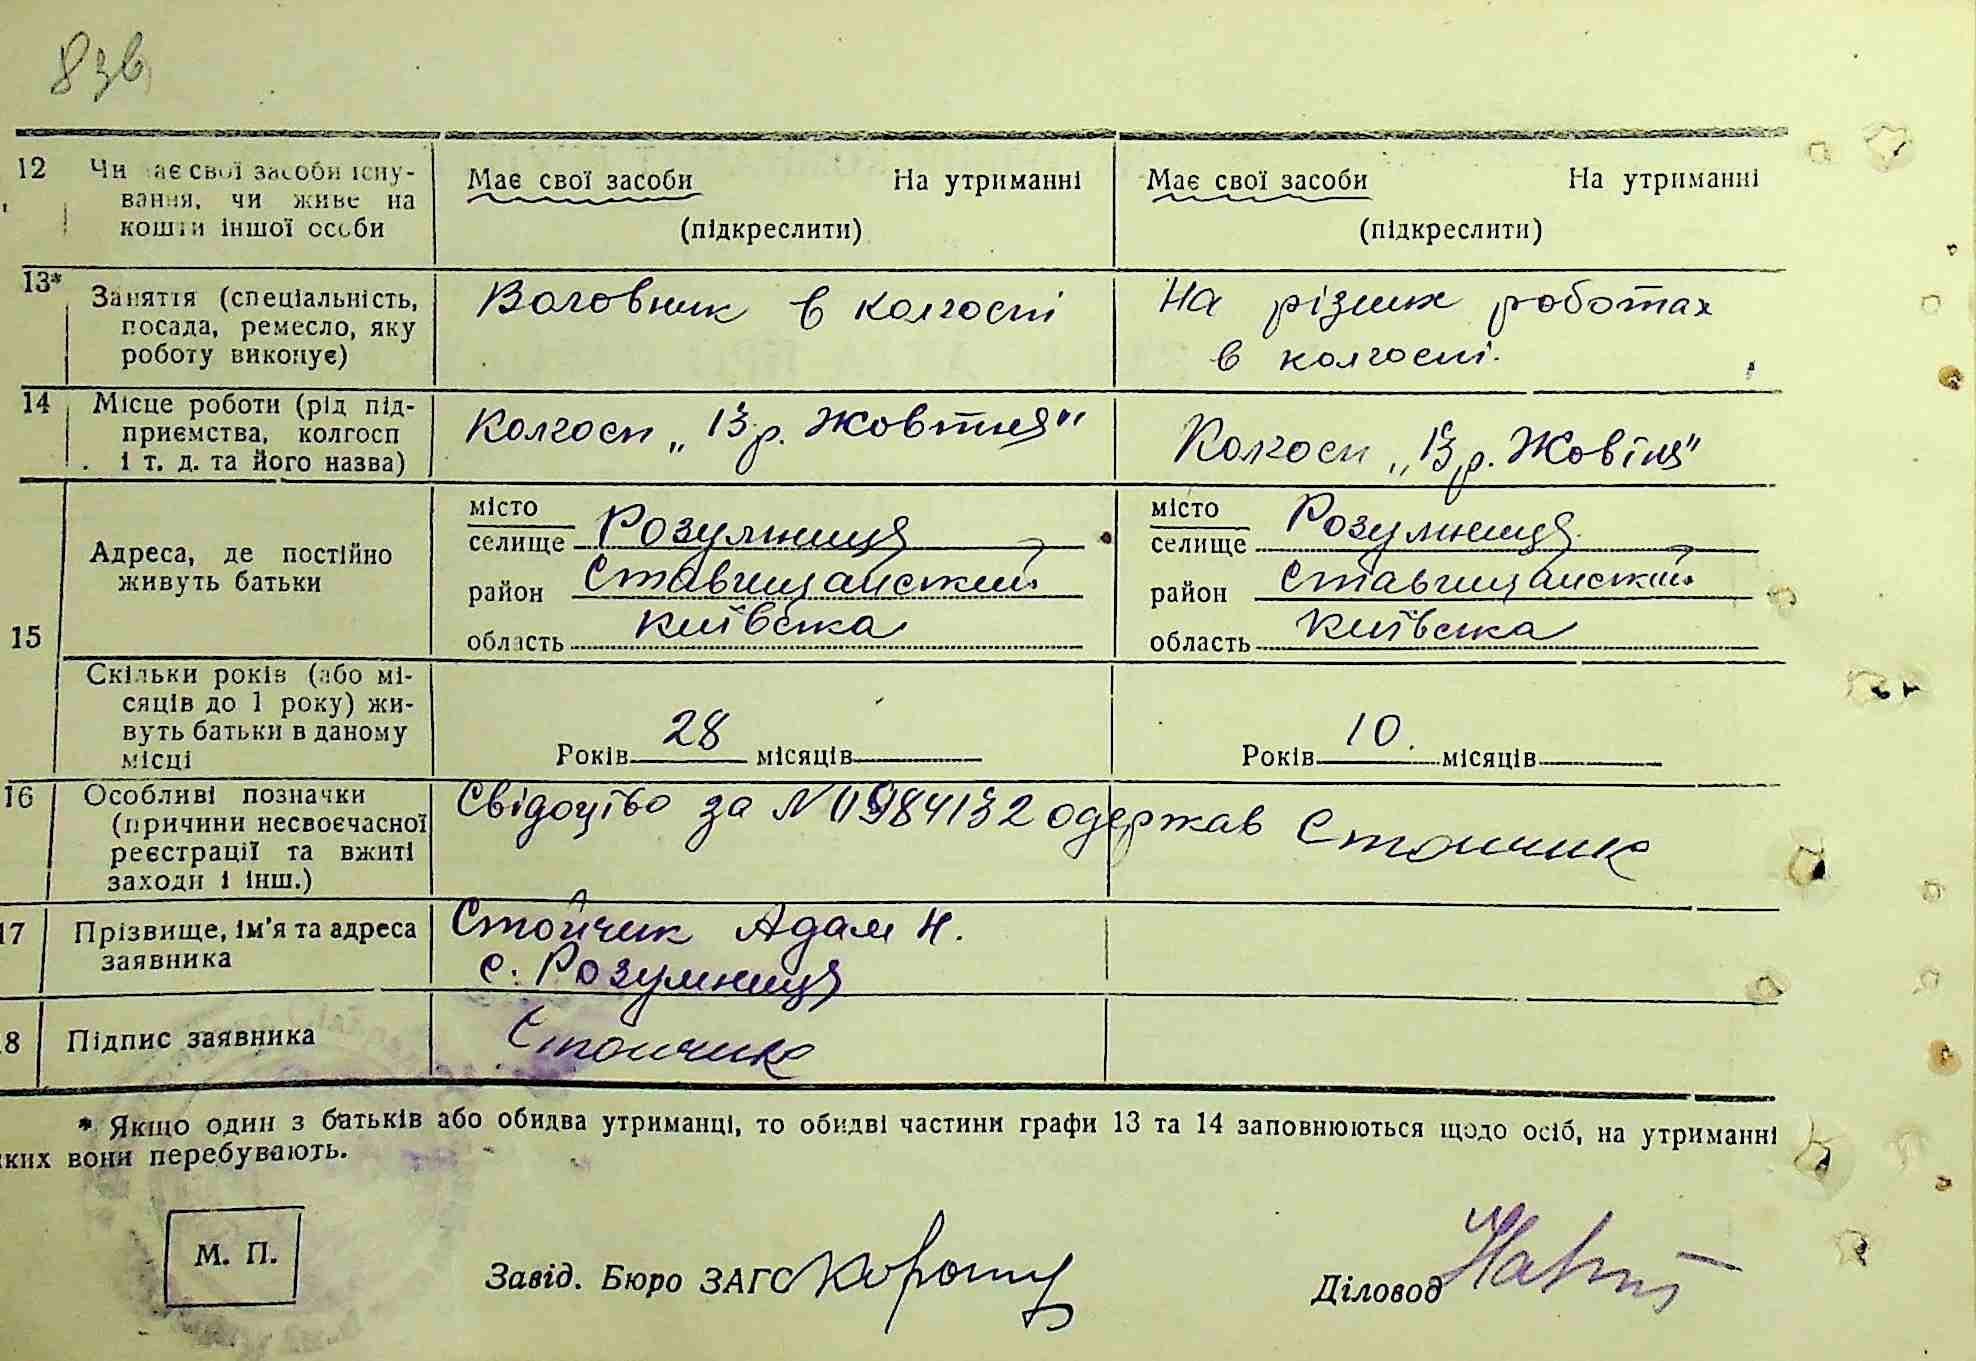 83в
12 Чи має свої засоби існу-
вання, чи живе на
кошти іншої особи
Має свої засоби На утриманні
(підкреслити)
Має свої засоби На утриманні
(підкреслити)
13* Заняття (спеціальність,
посада, ремесло, яку
роботу виконує)
Воловник в колгоспі
На різних роботах
в колгоспі.
14 Місце роботи (рід під-
приємства, колгосп
і т. д. та його назва)
Колгосп „13 р. Жовтня"
Колгосп „13 р. Жовтня"
15 Адреса, де постійно
живуть батьки
місто
селище Розумниця
район Ставищанський
область Київська
місто
селище Розумниця
район Ставищанський
область Київська
Скільки років (або мі-
сяців до 1 року) жи-
вуть батьки в даному
місці
Років 28 місяців
Років 10. місяців
16 Особливі позначки
(причини несвоєчасної
реєстрації та вжиті
заходи і інш.)
Свідоцтво за № 0984132 одержав Стойчик
17 Прізвище, ім'я та адреса
заявника
Стойчик Адам Н.
с. Розумниця
8 Підпис заявника
Стойчик
* Якщо один з батьків або обидва утриманці, то обидві частини графи 13 та 14 заповнюються щодо осіб, на утриманні
яких вони перебувають.
М. П.
Завід. Бюро ЗАГС
Діловод